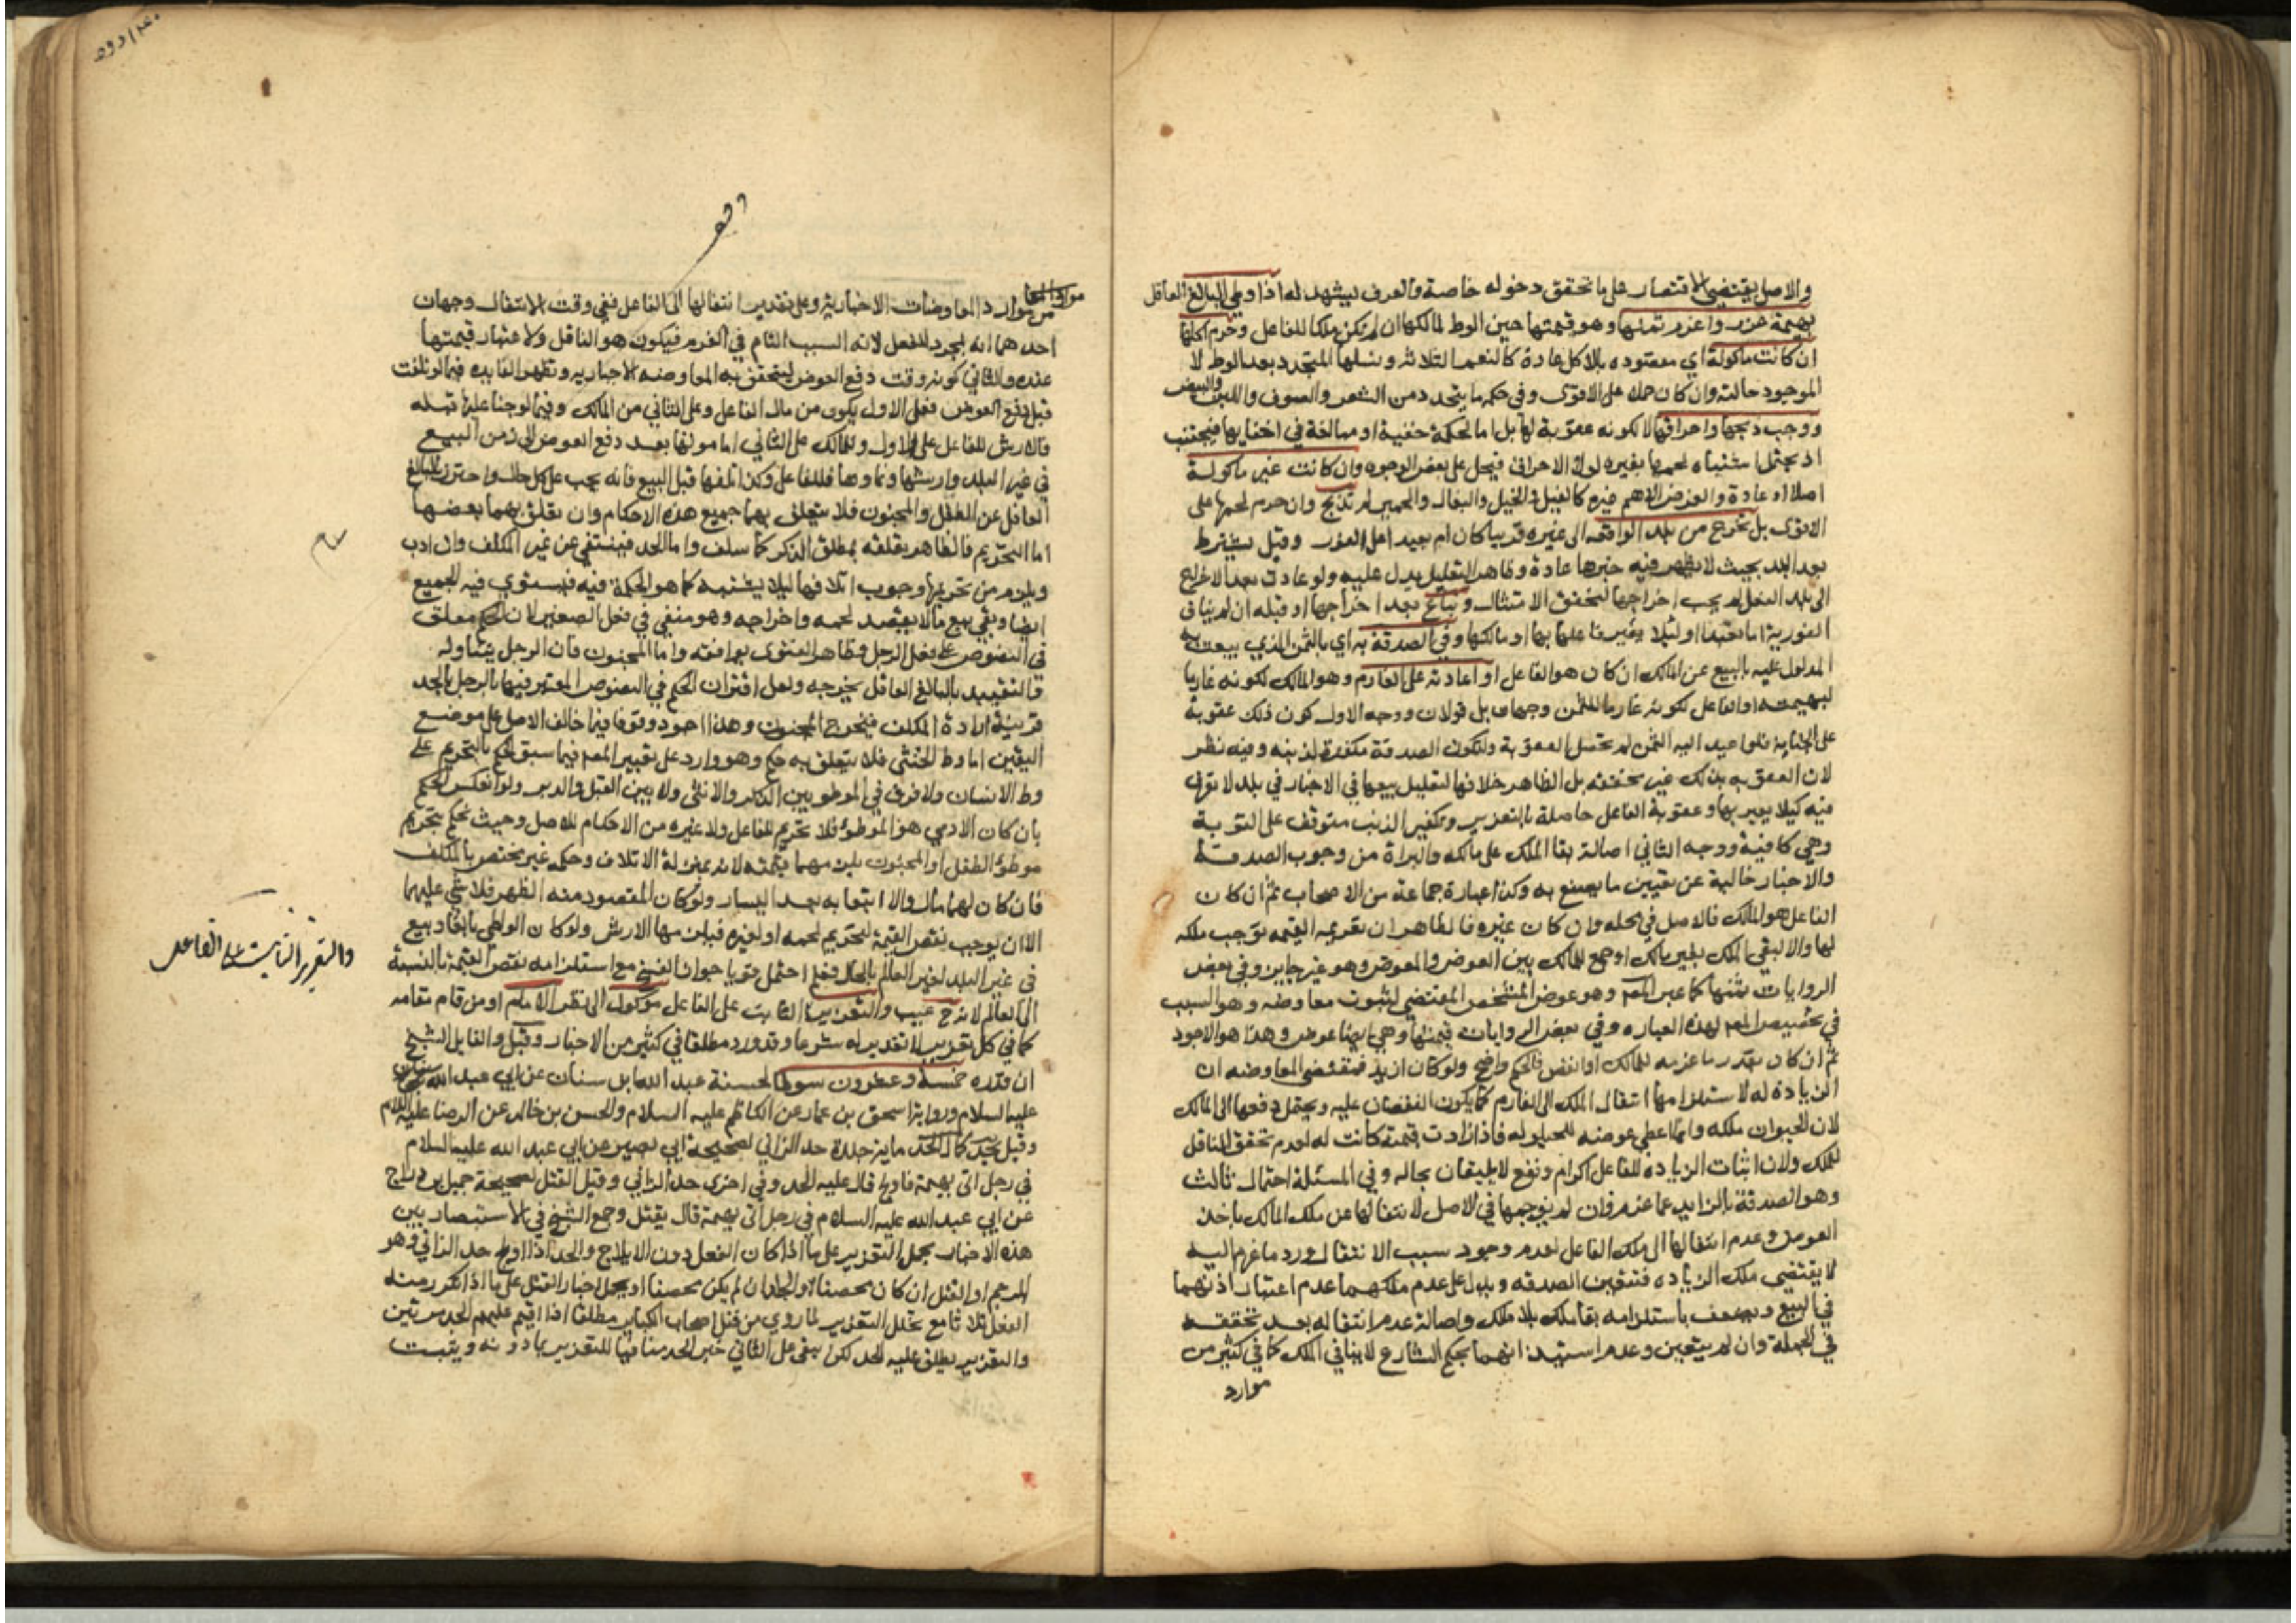 والاصل يقتضي الاقتصار على ما تحقق دخوله خاصة والعرف يشهد له اذا وطي البالغ العاقل
بهيمة عزر واغرم ثمنها وهو قيمتها حين الوط لمالكها ان لم يكن ملكا للفاعل وحرم اكلها
ان كانت ماكولة اي مقصوده بالاكل عادة كالنعم الثلاثة ونسلها المتجدد بعد الوطء لا
الموجود حالته وان كان حملا على الاقوى وفي حكمه ما يتجدد من الشعر والصوف واللبن والبيض
ووجب ذبحها واحراقها لا لكونه عقوبة لها بل اما لحكمة خفية او مبالغة في اخفايها فيجتنب
اذ يحتمل اشتباه لحمها بغيره لولا الاحراق فيحل على بعض الوجوه وان كانت غير ماكولة
اصلا او عادة والغرض الاهم غيره كالفيل والخيل والبغال والحمير لم تذبح وان حرم لحمها على
الاقوى بل تخرج من بلد الواقعه الى غيره قريبا كان ام بعيدا على الفور وقيل يشترط
بعد البلد بحيث لا يظهر فيه خبرها عادة وظاهر التعليل يدل عليه ولو عادت بعد الاخراج
الى بلد الفعل لم يجب اخراجها لتحقق الامتثال وتباع بعد اخراجها او قبله ان لم يناف
الفورية اما تعبدا او لئلا يعير فاعلها بها او مالكها وفي الصدقة به اي بالثمن الذي بيعت به
المدلول عليه بالبيع عن المالك ان كان هو الفاعل او اعادته على الغارم وهو المالك لكونه غارما
لبهيمته او الفاعل لكونه غارما للثمن وجهان بل قولان ووجه الاول كون ذلك عقوبة
على الجناية فلو اعيد اليه الثمن لم تحصل العقوبة ولتكون الصدقة مكفرة لذنبه وفيه نظر
لان العقوبه بذلك غير محققه بل الظاهر خلافها لتعليل بيعها في الاخبار في بلد لا تعرف
فيه كيلا يعير بها وعقوبة الفاعل حاصلة بالتعزير وتكفير الذنب متوقف على التوبة
وهي كافية ووجه الثاني اصالة بقا الملك على مالكه والبراة من وجوب الصدقة
والاخبار خالية عن تعيين ما يصنع به وكذا عبارة جماعة من الاصحاب ثم ان كان
الفاعل هو المالك فالاصل في محله وان كان غيره فالظاهر ان تغريمه القيمه توجب ملكه
لها والا لبقي الملك بغير مالك او جمع للمالك بين العوض والمعوض وهو غير جاين وفي بعض
الروايات ثمنها كما عبر المص وهو عوض المثمن المقتضي لثبوت معاوضه وهو السبب
في تخصيص المص لهذه العباره وفي بعض الروايات قيمتها وهي ايضا عوض وهذا هو الاجود
ثم ان كان بقدر ما غرمه للمالك او انقص فالحكم واضح ولو كان ازيد فمقتضى المعاوضه ان
الزيادة له لاستلزامها انتقال الملك الى الغارم كما يكون النقصان عليه ويحتمل دفعها الى المالك
لان الحيوان ملكه وانما اعطي عوضه للحيلوله فاذا زادت قيمته كانت له لعدم تحقق الناقل
للملك ولان اثبات الزياده للفاعل اكرام ونفع لا يليقان بحاله وفي المسئلة احتمال ثالث
وهو الصدقة بالزايد عما غرم وان لم نوجبها في الاصل لانتفالها عن ملك المالك باخذ
العوض وعدم انتقالها الى ملك الفاعل لعدم وجود سبب الانتقال ورد ما غرم اليه
لا يقتضي ملك الزياده فتتعين الصدقه ويدل على عدم ملكهما عدم اعتبار اذنهما
في البيع ويضعف باستلزامه بقا ملك بلا ملك واصالة عدم انتقاله بعد تحققه
في الجملة وان لم يتعين وعدم استيذانهما بحكم الشارع لا ينافي الملك كما في كثير من
موارد
من موارد المعاوضات الاخبارية وعلى تقدير انتقالها الى الفاعل ففي وقت الانتقال وجهان
احدهما انه بمجرد الفعل لانه السبب التام في الغرم فيكون هو الناقل ولاعتبار قيمتها
عنده والثاني كونه وقت دفع العوض لتحقق به المعاوضه الاجباريه وتظهر الفايده فيما لو تلفت
قبل دفع العوض فعلى الاول يكون من مال الفاعل وعلى الثاني من المالك وفيما لو جنا عليها قبله
فالارش للفاعل على الاول وللمالك على الثاني اما مونتها بعد دفع العوض الى زمن البيع
في غير البلد وارشها ونماوها فللفاعل وكذا تلفها قبل البيع فانه يجب على كل حال واحترز بالبالغ
العاقل عن الطفل والمجنون فلا يتعلق بهما جميع هذه الاحكام وان تعلق بهما بعضها
اما التحريم فالظاهر تعلقه بمطلق الذكر كما سلف واما الحد فينتفي عن غير المكلف وان ادب
ويلزم من تحريمها وجوب اتلافها ليلا يشتبه كما هو الحكمة فيه فيستوي فيه الجميع
ايضا وبقي بيع ما لا يقصد لحمه واخراجه وهو منفي في فعل الصغير لان الحكم معلق
في النصوص على فعل الرجل وظاهر الفتوى يوافقه واما المجنون فان الرجل يتناوله
فالتقييد بالبالغ العاقل يخرجه ولعل اقتران الحكم في النصوص المعتبر فيها بالرجل بالحد
قرينة ارادة المكلف فيخرج المجنون وهذا اجود وقوفا فيما خالف الاصل على موضع
اليقين اما وط الخنثى فلا يتعلق به حكم وهو وارد على تعبير المص فيما سبق الحكم بالتحريم على
وط الانسان ولا فرق في الموطو بين الذكر والانثى ولا بين القبل والدبر ولو انعكس الحكم
بان كان الادمي هو الموطوء فلا تحريم للفاعل ولا غيره من الاحكام للاصل وحيث يحكم بتحريم
موطؤ الطفل او المجنون يلزمهما قيمته لانه بمنزلة الاتلاف وحكمه غير مختص بالمكلف
فان كان لهما مال والا اتبعا به بعد اليسار ولو كان المقصود منه الظهر فلا شي عليهما
الا ان يوجب نقص القيمة لتحريم لحمه او لغيره فيلزمهما الارش ولو كان الواطى بالغا وبيع
في غير البلد لغير العالم بالحال فعلم احتمل قويا جواز الفسخ مع استلزامه نقص القيمة بالنسبة
الى العالم لانه ح عيب والتعزير الثابت على الفاعل موكول الى نظر الامام او من قام مقامه
والتعزير الثابت على الفاعل
كما في كل تعزير لا تقدير له شرعا وقد ورد مطلقا في كثير من الاخبار وقيل والقايل الشيخ
ان قدره خمسة وعشرون سوطا لحسنة عبد الله بن سنان عن ابي عبد الله
عليه السلام ورواية اسحق بن عمار عن الكاظم عليه السلام والحسن بن خالد عن الرضا عليه السلام
وقيل يحد كمال الحد ماية جلدة حد الزاني لصحيحة ابي بصير عن ابي عبد الله عليه السلام
في رجل اتى بهيمة فاولج قال عليه الحد وفي اخرى حد الزاني وقيل القتل لصحيحة جميل بن دراج
عن ابي عبد الله عليه السلام في رجل اتى بهيمة قال يقتل وجمع الشيخ في الاستبصار بين
هذه الاخبار بحمل التعزير على ما اذا كان الفعل دون الايلاج والحد اذا اولج حد الزاني وهو
الرجم او القتل ان كان محصنا او الجلد ان لم يكن محصنا او بحمل اخبار القتل على ما اذا تكرر منه
الفعل ثلاثا مع تخلل التعزير لما روي من قتل اصحاب الكباير مطلقا اذا اقيم عليهم الحد مرتين
والتعزير يطلق عليه الحد لكن يبقى على الثاني خبر الحد منافيا للتعزير بما دونه ويثبت